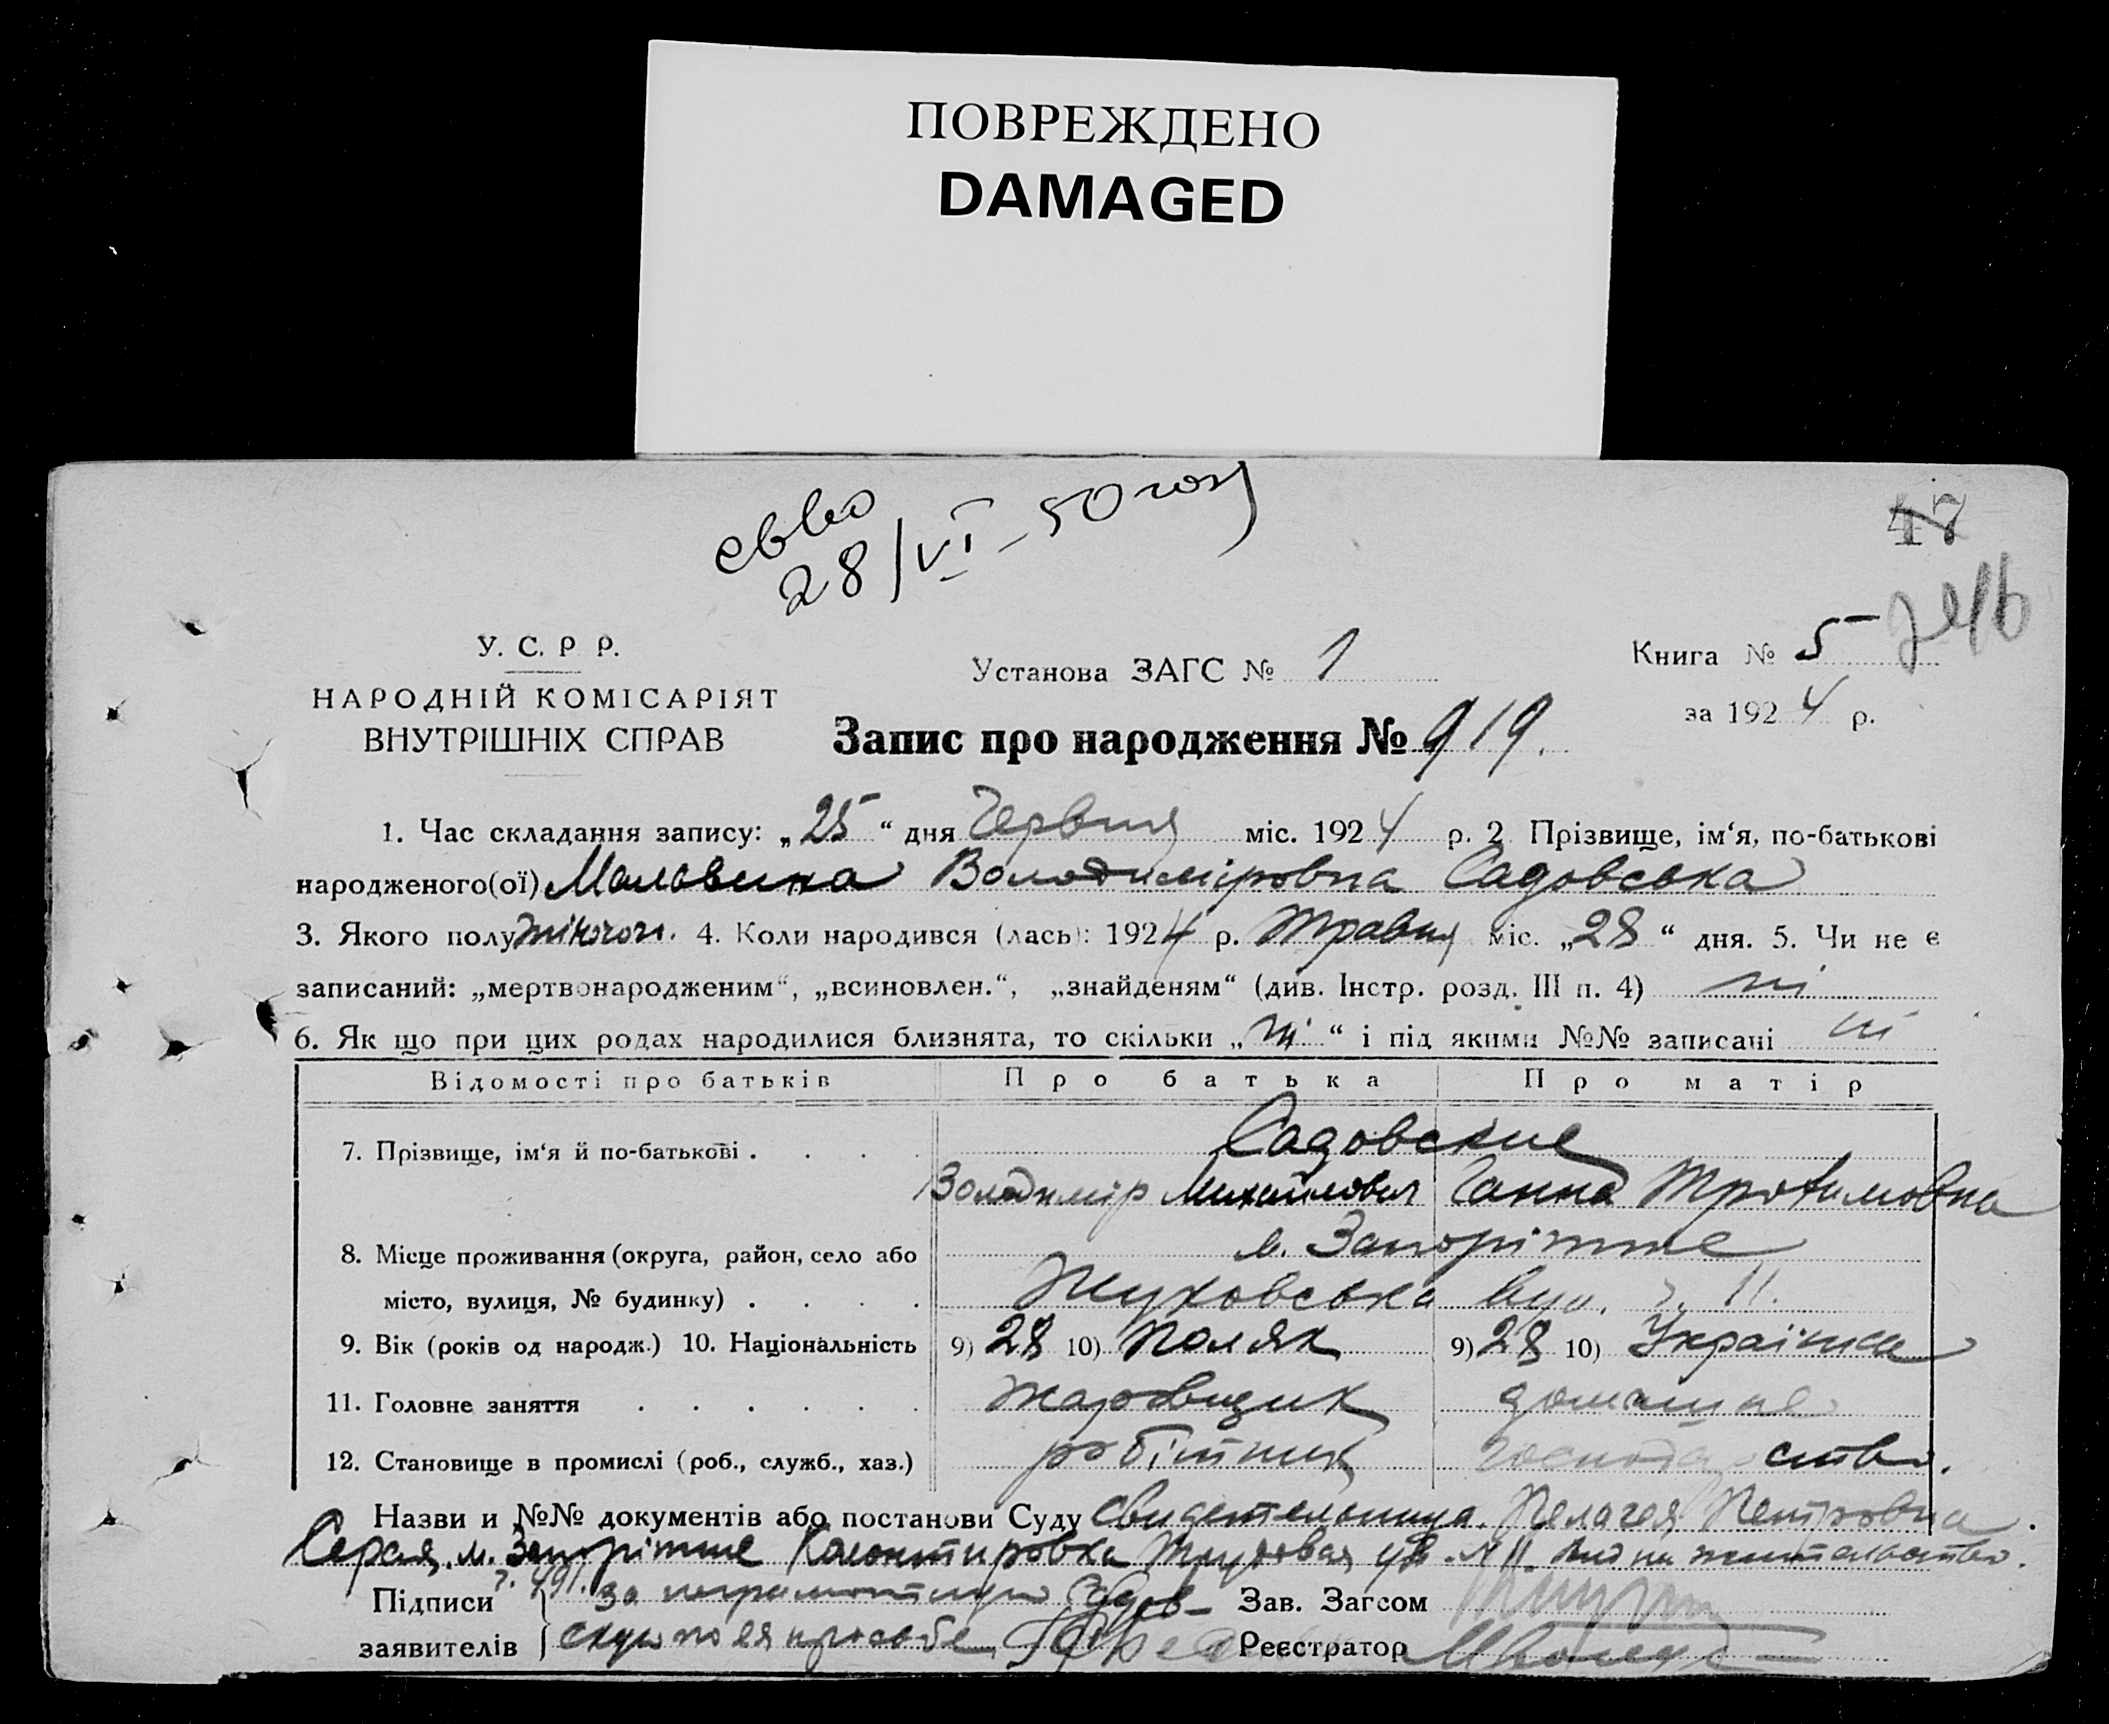 ПОВРЕЖДЕНО
DAMAGED
28/VI-50 года
47
У. С. Р Р.
НАРОДНІЙ КОМІСАРІЯТ
ВНУТРІШНІХ СПРАВ
Установа ЗАГС № 1
Книга № 5
за 1924 р.
Запис про народження № 919.
1. Час складання запису: „25“ дня Червня міс. 1924 р. 2 Прізвище, ім‘я, по-батькові
народженого(ої) Малавина Володиміровна Садовська
3. Якого полу жіночого. 4. Коли народився (лась): 1924 р. Травня міс. „28“ дня. 5. Чи не є
записаний: „мертвонародженим“, „всиновлен.“, „знайденям“ (див. Інстр. розд. III п. 4) ні
6. Як що при цих родах народилися близнята, то скільки „ні“ і під якими №№ записані ні
Відомості про батьків Про батька Про матір
7. Прізвище, ім‘я й по-батькові . . . . Садовские
Володимір Михайлович Ганна Трофимовна
8. Місце проживання (округа, район, село або м. Запоріжже
місто, вулиця, № будинку) . . . . Жуковська вул. 11.
9. Вік (років од народж.) 10. Національність 9) 28 10) Поляк 9) 28 10) Українка
11. Головне заняття . . . . . . домашнє
12. Становище в промислі (роб., служб., хаз.) робітник господарство.
Назви и №№ документів або постанови Суду Свидетельница. Пелагея Петровна
Серая, м. Запоріжже № 11 вид на жительство.
Підписи за неграмотную Садов-
заявителів скую по ея просьбе
Зав. Загсом
Реєстратор